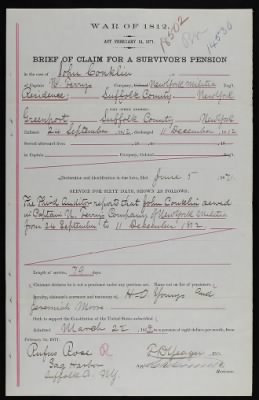 WAR OF 1812.
ACT FEBRUARY 14, 1871.
18502
14530
BRIEF OF CLAIM FOR A SURVIVOR'S PENSION
In the case of John Conklin
of Captain N. Terry's Company, New York Militia Reg't
Residence: Suffolk County New York
Post office address:
Greenport, Suffolk County New York
Enlisted 24 September 1812, discharged 11 December, 1812
Served afterward from
in Captain Company, Colonel
Declaration and identification in due form, filed June 5, 187
SERVICE FOR SIXTY DAYS, SHOWN AS FOLLOWS:
The Third Auditor reports that John Conklin served
in Captain N. Terry's Company of New York Militia
from 24 September to 11 December 1812.
Length of service, 79 days.
Claimant declares he is not a pensioner under any previous act. Name not on list of pensioners
Loyalty, claimant's averment and testimony of H. O. Youngs and
Jeremiah Moore
Oath to support the Constitution of the United States subscribed
March 22, 187 at a pension of eight dollars per month, from
February 14, 1871.
Rufus Rose
Sag Harbor
Suffolk Co. N.Y.
Examiner.
Reviewer.